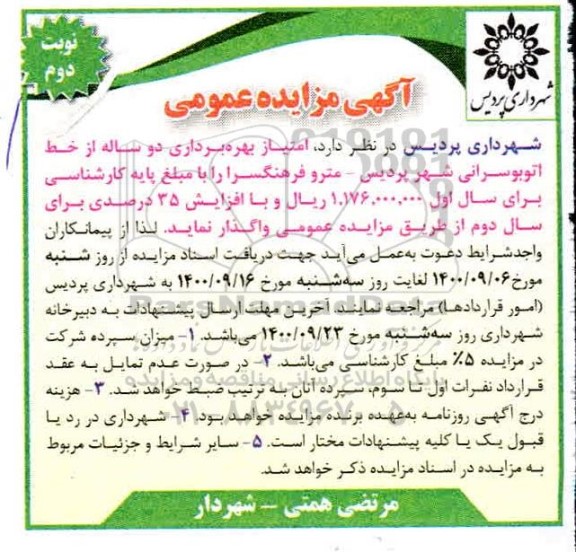 نوبت
دوم
شهرداری پردیس
آگهی مزایده عمومی
شهرداری پردیس در نظر دارد، امتیاز بهره‌برداری دو ساله از خط
اتوبوسرانی شهر پردیس - مترو فرهنگسرا را با مبلغ پایه کارشناسی
برای سال اول ۱.۱۷۶.۰۰۰.۰۰۰ ریال و با افزایش ۳۵ درصدی برای
سال دوم از طریق مزایده عمومی واگذار نماید. لذا از پیمانکاران
واجدشرایط دعوت به‌عمل می‌آید جهت دریافت اسناد مزایده از روز شنبه
مورخ ۱۴۰۰/۰۹/۰۶ لغایت روز سه‌شنبه مورخ ۱۴۰۰/۰۹/۱۶ به شهرداری پردیس
(امور قراردادها) مراجعه نمایند. آخرین مهلت ارسال پیشنهادات به دبیرخانه
شهرداری روز سه‌شنبه مورخ ۱۴۰۰/۰۹/۲۳ می‌باشد. ۱- میزان سپرده شرکت
در مزایده ۵٪ مبلغ کارشناسی می‌باشد. ۲- در صورت عدم تمایل به عقد
قرارداد نفرات اول تا سوم، سپرده آنان به ترتیب ضبط خواهد شد. ۳- هزینه
درج آگهی روزنامه به‌عهده برنده مزایده خواهد بود. ۴- شهرداری در رد یا
قبول یک یا کلیه پیشنهادات مختار است. ۵- سایر شرایط و جزئیات مربوط
به مزایده در اسناد مزایده ذکر خواهد شد.
مرتضی همتی - شهردار
ParsNamadData
پایگاه اطلاع رسانی مناقصه و مزایده
۰۲۱-۸۸۳۴۹۶۷۰-۵